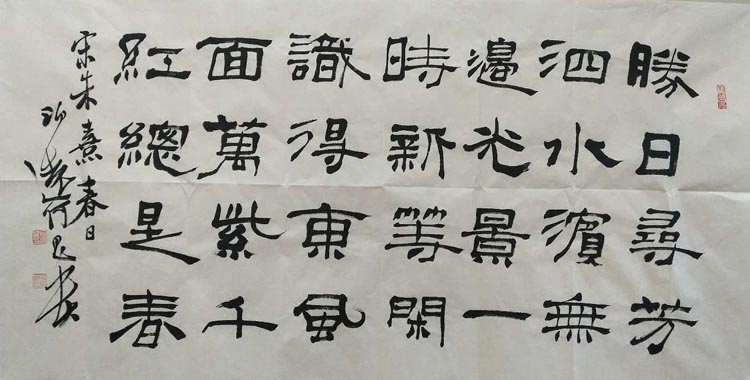 勝日尋芳
泗水濱無
邊光景一
時新等閑
識得東風
面萬紫千
紅總是春
宋朱熹春日